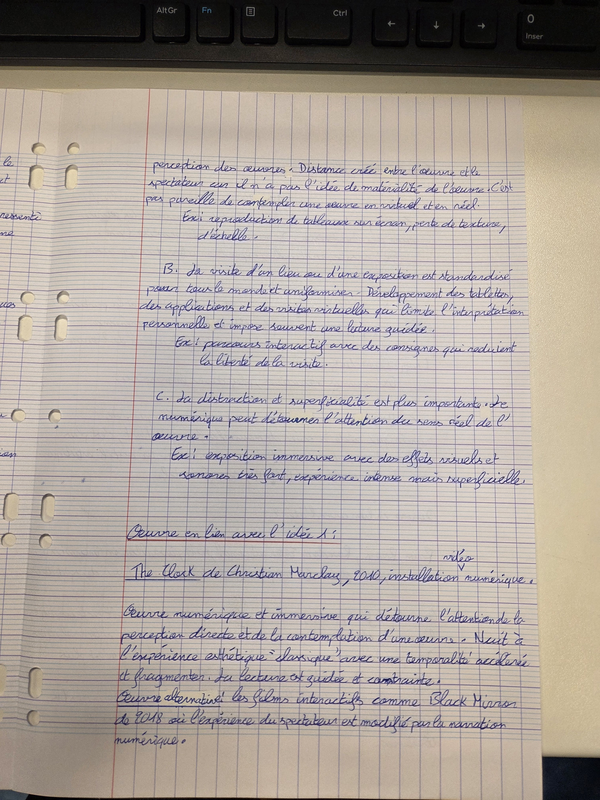 AltGr
Fn
Ctrl
←
↓
→
0
Inser
le
ct
ressenti
me
perception des œuvres. Distance créé entre l'œuvre et le
spectateur car il n'a pas l'idée de matérialité de l'œuvre. C'est
pas pareille de contempler une œuvre en virtuel et en réel.
Ex: reproduction de tableaux sur écran, perte de texture,
d'échelle.
B. La visite d'un lieu ou d'une exposition est standardisé
pour tous le monde et uniformiser. Développement des tablettes,
des applications et des visites virtuelles qui limite l'interprétation
personnelle et impose souvent une lecture guidée.
Ex: parcours interactif avec des consignes qui reduient
la liberté de la visite.
C. La distraction et superficialité est plus importante. Le
numérique peut détourner l'attention du sens réel de l'
œuvre.
Ex: exposition immersive avec des effets visuels et
sonores très fort, expérience intense mais superficielle.
Œuvre en lien avec l'idée 1:
vidéo
The Clock de Christian Marclay, 2010, installation numérique.
Œuvre numérique et immersive qui détourne l'attention de la
perception directe et de la contemplation d'une œuvre. Nuit à
l'expérience esthétique "classique" avec une temporalité accélérée
et fragmenter. La lecture est guidée et contrainte.
Œuvre alternative: les films interactifs comme Black Mirror
de 2018 où l'expérience du spectateur est modifié par la narration
numérique.